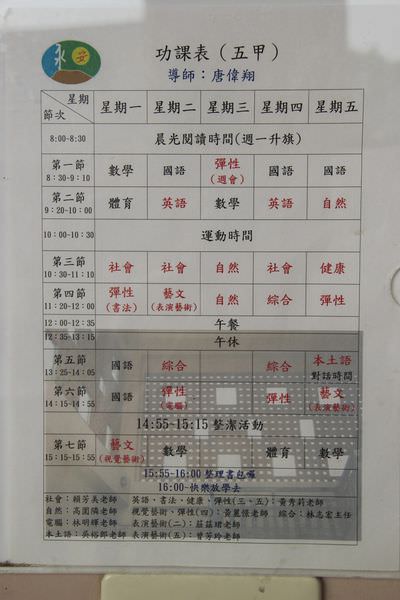 永安
功課表（五甲）
導師：唐偉翔
星期 節次 星期一 星期二 星期三 星期四 星期五
8:00-8:30 晨光閱讀時間(週一升旗)
第一節 8:30-9:10 數學 國語 彈性(週會) 國語 國語
第二節 9:20-10:00 體育 英語 數學 英語 自然
10:00-10:30 運動時間
第三節 10:30-11:10 社會 社會 自然 社會 健康
第四節 11:20-12:00 彈性(書法) 藝文(表演藝術) 自然 綜合 彈性
12:00-12:35 午餐
12:35-13:15 午休
第五節 13:25-14:05 國語 綜合 綜合 本土語 對話時間
第六節 14:15-14:55 國語 彈性(電腦) 彈性 藝文(表演藝術)
14:55-15:15 整潔活動
第七節 15:15-15:55 藝文(視覺藝術) 數學 體育 數學
15:55-16:00 整理書包囉
16:00-快樂放學去
社會：賴芳美老師 英語、書法、健康、彈性(三、五)：黃秀莉老師
自然：高園隣老師 視覺藝術、彈性(四)：黃麗憬老師 綜合：林志宏主任
電腦：林明輝老師 表演藝術(二)：莊蕋珺老師
本土語：吳裕郎老師 表演藝術(五)：曾芳玲老師